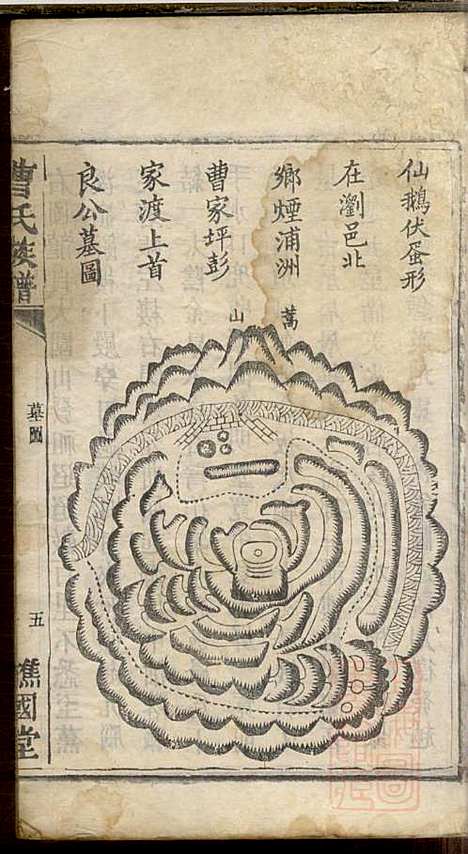 仙鵝伏蛋形
在瀏邑北
鄉煙浦洲
曹家坪彭
家渡上首
良公墓圖
萬
山
曹氏族譜
墓圖
五
譙國堂